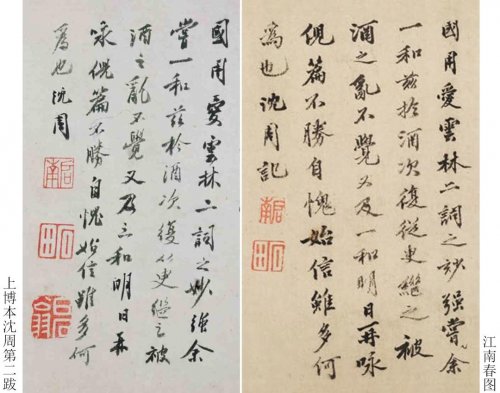 江南春图
國用愛雲林二詞之妙强嘗余
一和茲於酒次復從臾繼之被
酒之亂不覺又及一和明日再詠
倪篇不勝自愧始信雖多何
為也沈周記
啟南
石田
國用愛雲林二詞之妙強余
嘗一和茲於酒次復從臾繼之被
酒之亂不覺又及三和明日再
詠倪篇不勝自愧始信雖多何
為也沈周
啟南
石田
上博本沈周第二跋